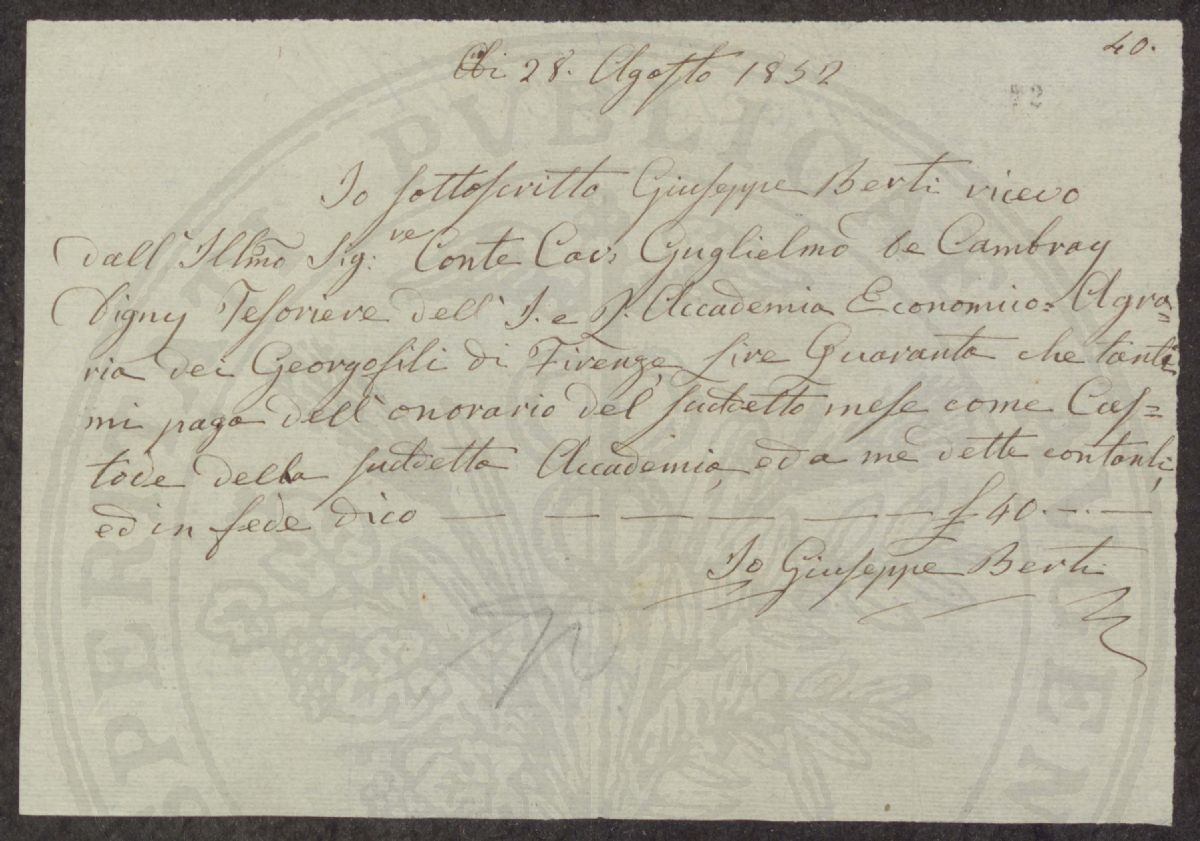 40.
Adi 28. Agosto 1832
52
Io sottoscritto Giuseppe Berti ricevo
dall' Illmo Sig.re Conte Cav: Guglielmo de Cambray
Digny Tesoriere dell' I. e R. Accademia Economico=Agra=
ria dei Georgofili di Firenze lire Quaranta che tante
mi paga dell' onorario del suddetto mese come Cus=
tode della suddetta Accademia, ed a me dette contanti,
ed in fede dico — — — — — — £ 40. — · —
Io Giuseppe Berti
PROSPERITATI PUBLICAE AUGENDAE